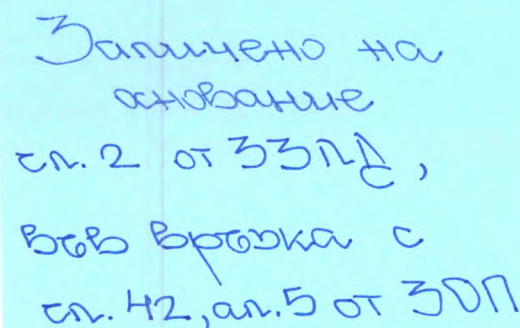 Заличено на
основание
чл. 2 от ЗЗЛД,
във връзка с
чл. 42, ал. 5 от ЗОП